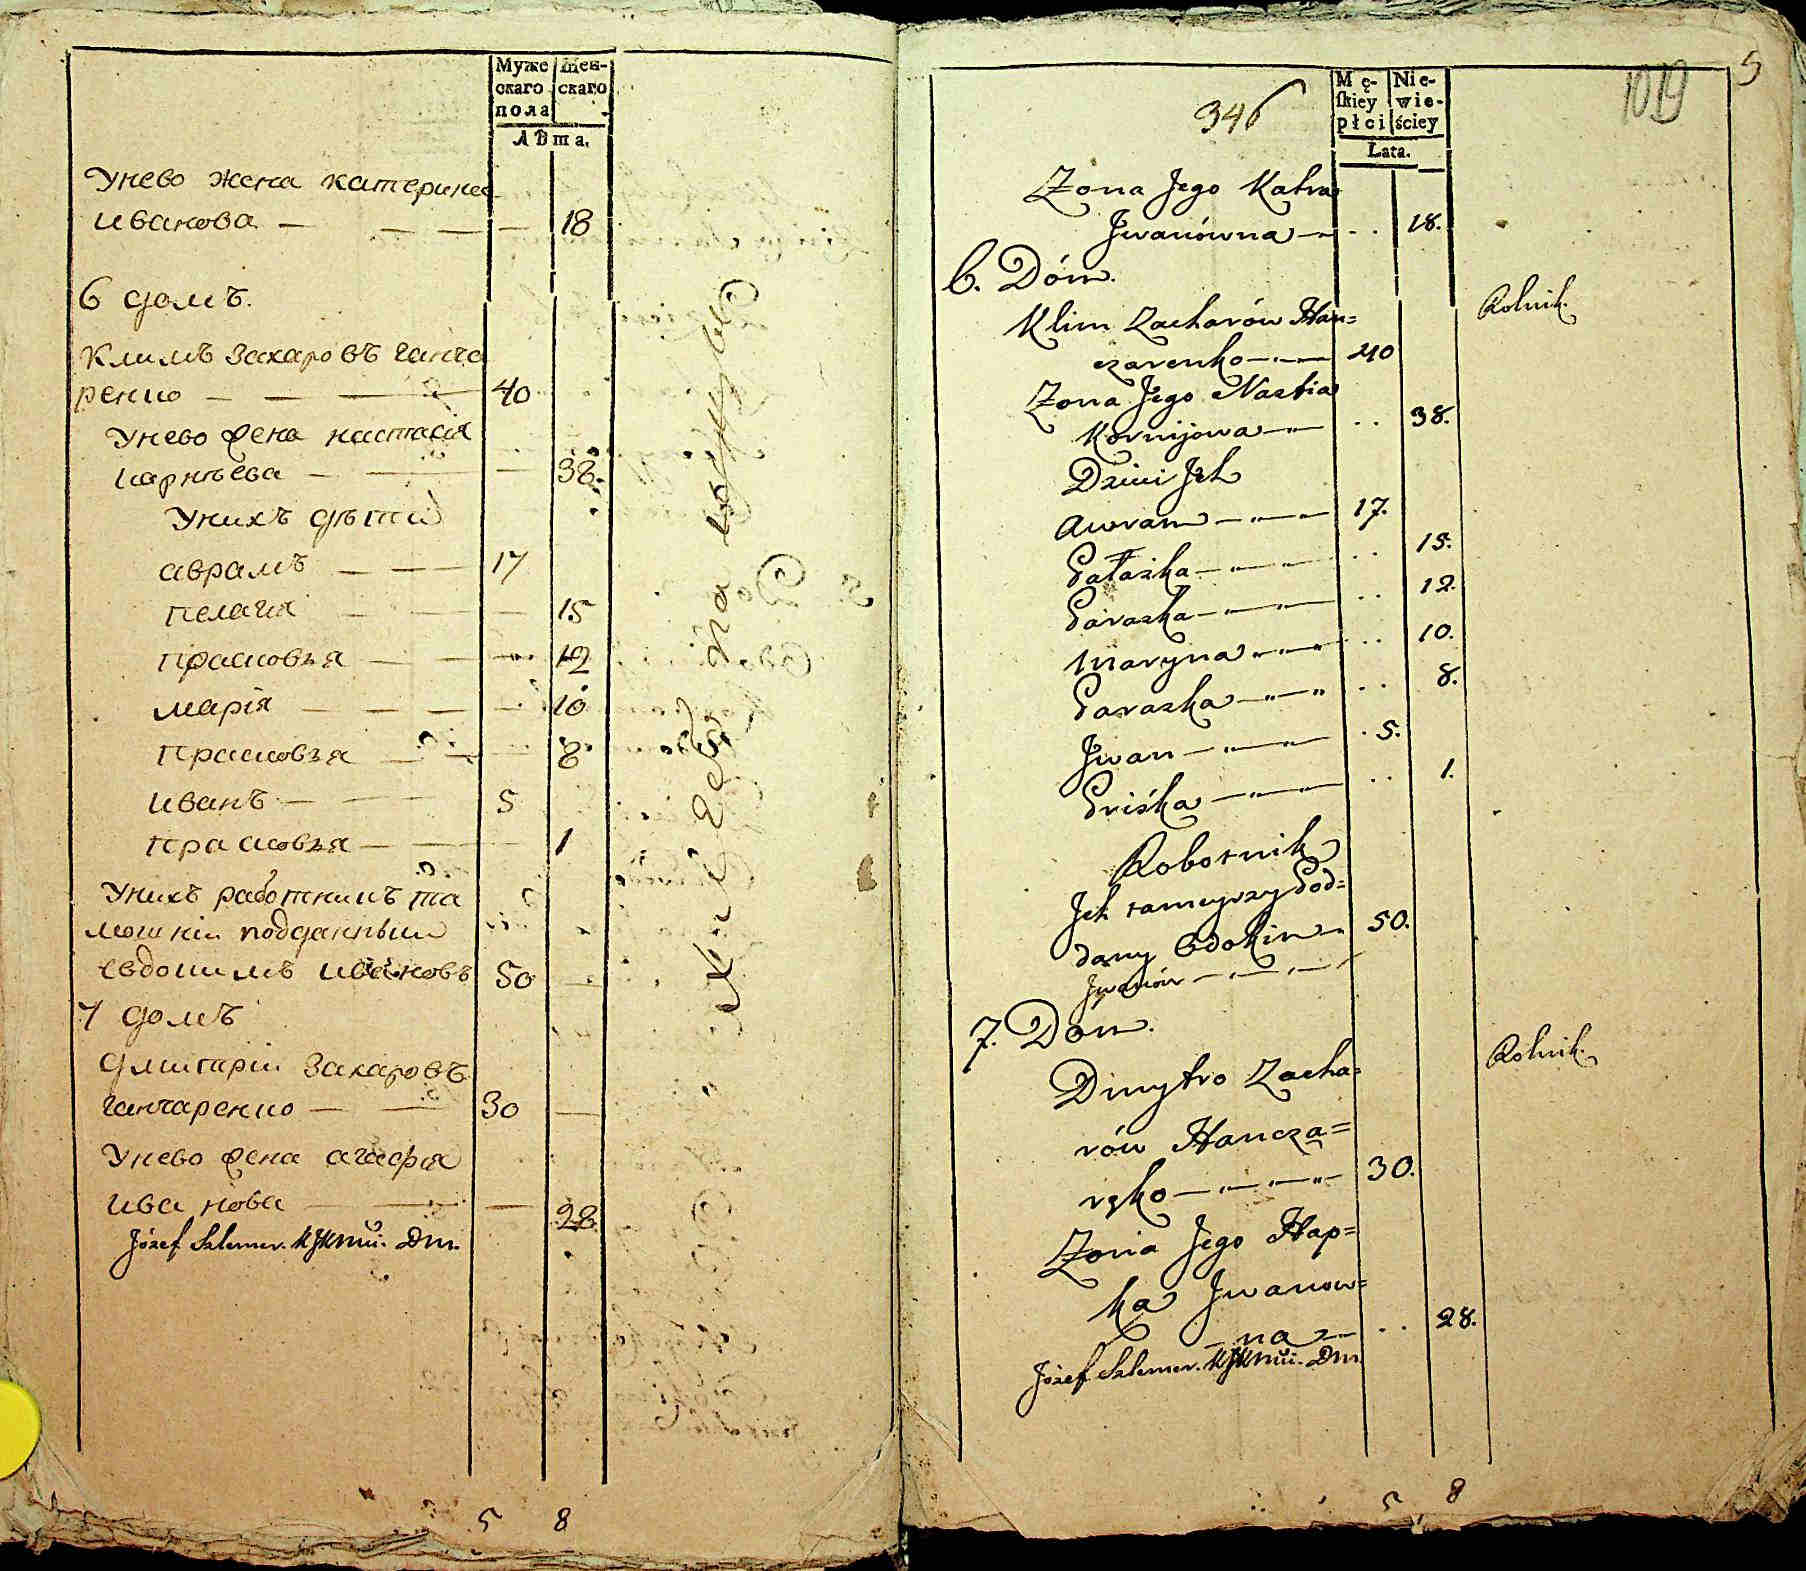 Муже
скаго
пола
Жен-
скаго
Лѣта.
Унево жена катерина
иванова — — — — 18
6 домъ.
Климъ Захаровъ ганча
ренко — — — 40
Унево жена настасія
карнѣева — — — 38.
Унихъ дѣти
аврамъ — — — 17
пелагія — — — 15
прасковъя — — — 12
марія — — — — 10
Прасковъя — — — 8
иванъ — — — 5
прасковъя — — — 1
Унихъ работникъ та
мошній подданный
евдокимъ ивановъ 50
7 домъ
дмитрій Захаровъ
ганчаренко — — 30 —
Унево жена агафія
ивановa — — — 28
Józef Szlemer. KJKmći. Dm.
5 8
346
1019
5
Mę-
skiey
płci
Nie-
wie-
ściey
Lata.
Zona Jego Katra
Jwanówna — .. 18.
6. Dóm.
Rolnik.
Klim Zacharów Han=
czarenko — 40
Zona Jego Nastia
Kornijowa — .. 38.
Dzieci Jch
Awram — 17.
Pałażka — .. 15.
Paraska — .. 12.
Maryna — .. 10.
Paraska — .. 8.
Jwan — . 5.
Priśka — .. 1.
Robotnik
Jch tameyszy Pod=
dany Ewdokim 50.
Jwanów — — —
7. Dóm.
Rolnik.
Dmytro Zacha=
rów Hancza=
ręko — — — 30.
Zona Jego Hap=
ka Jwanow=
na — .. 28.
Józef Szlemer. KJKmći. Dm.
5 8